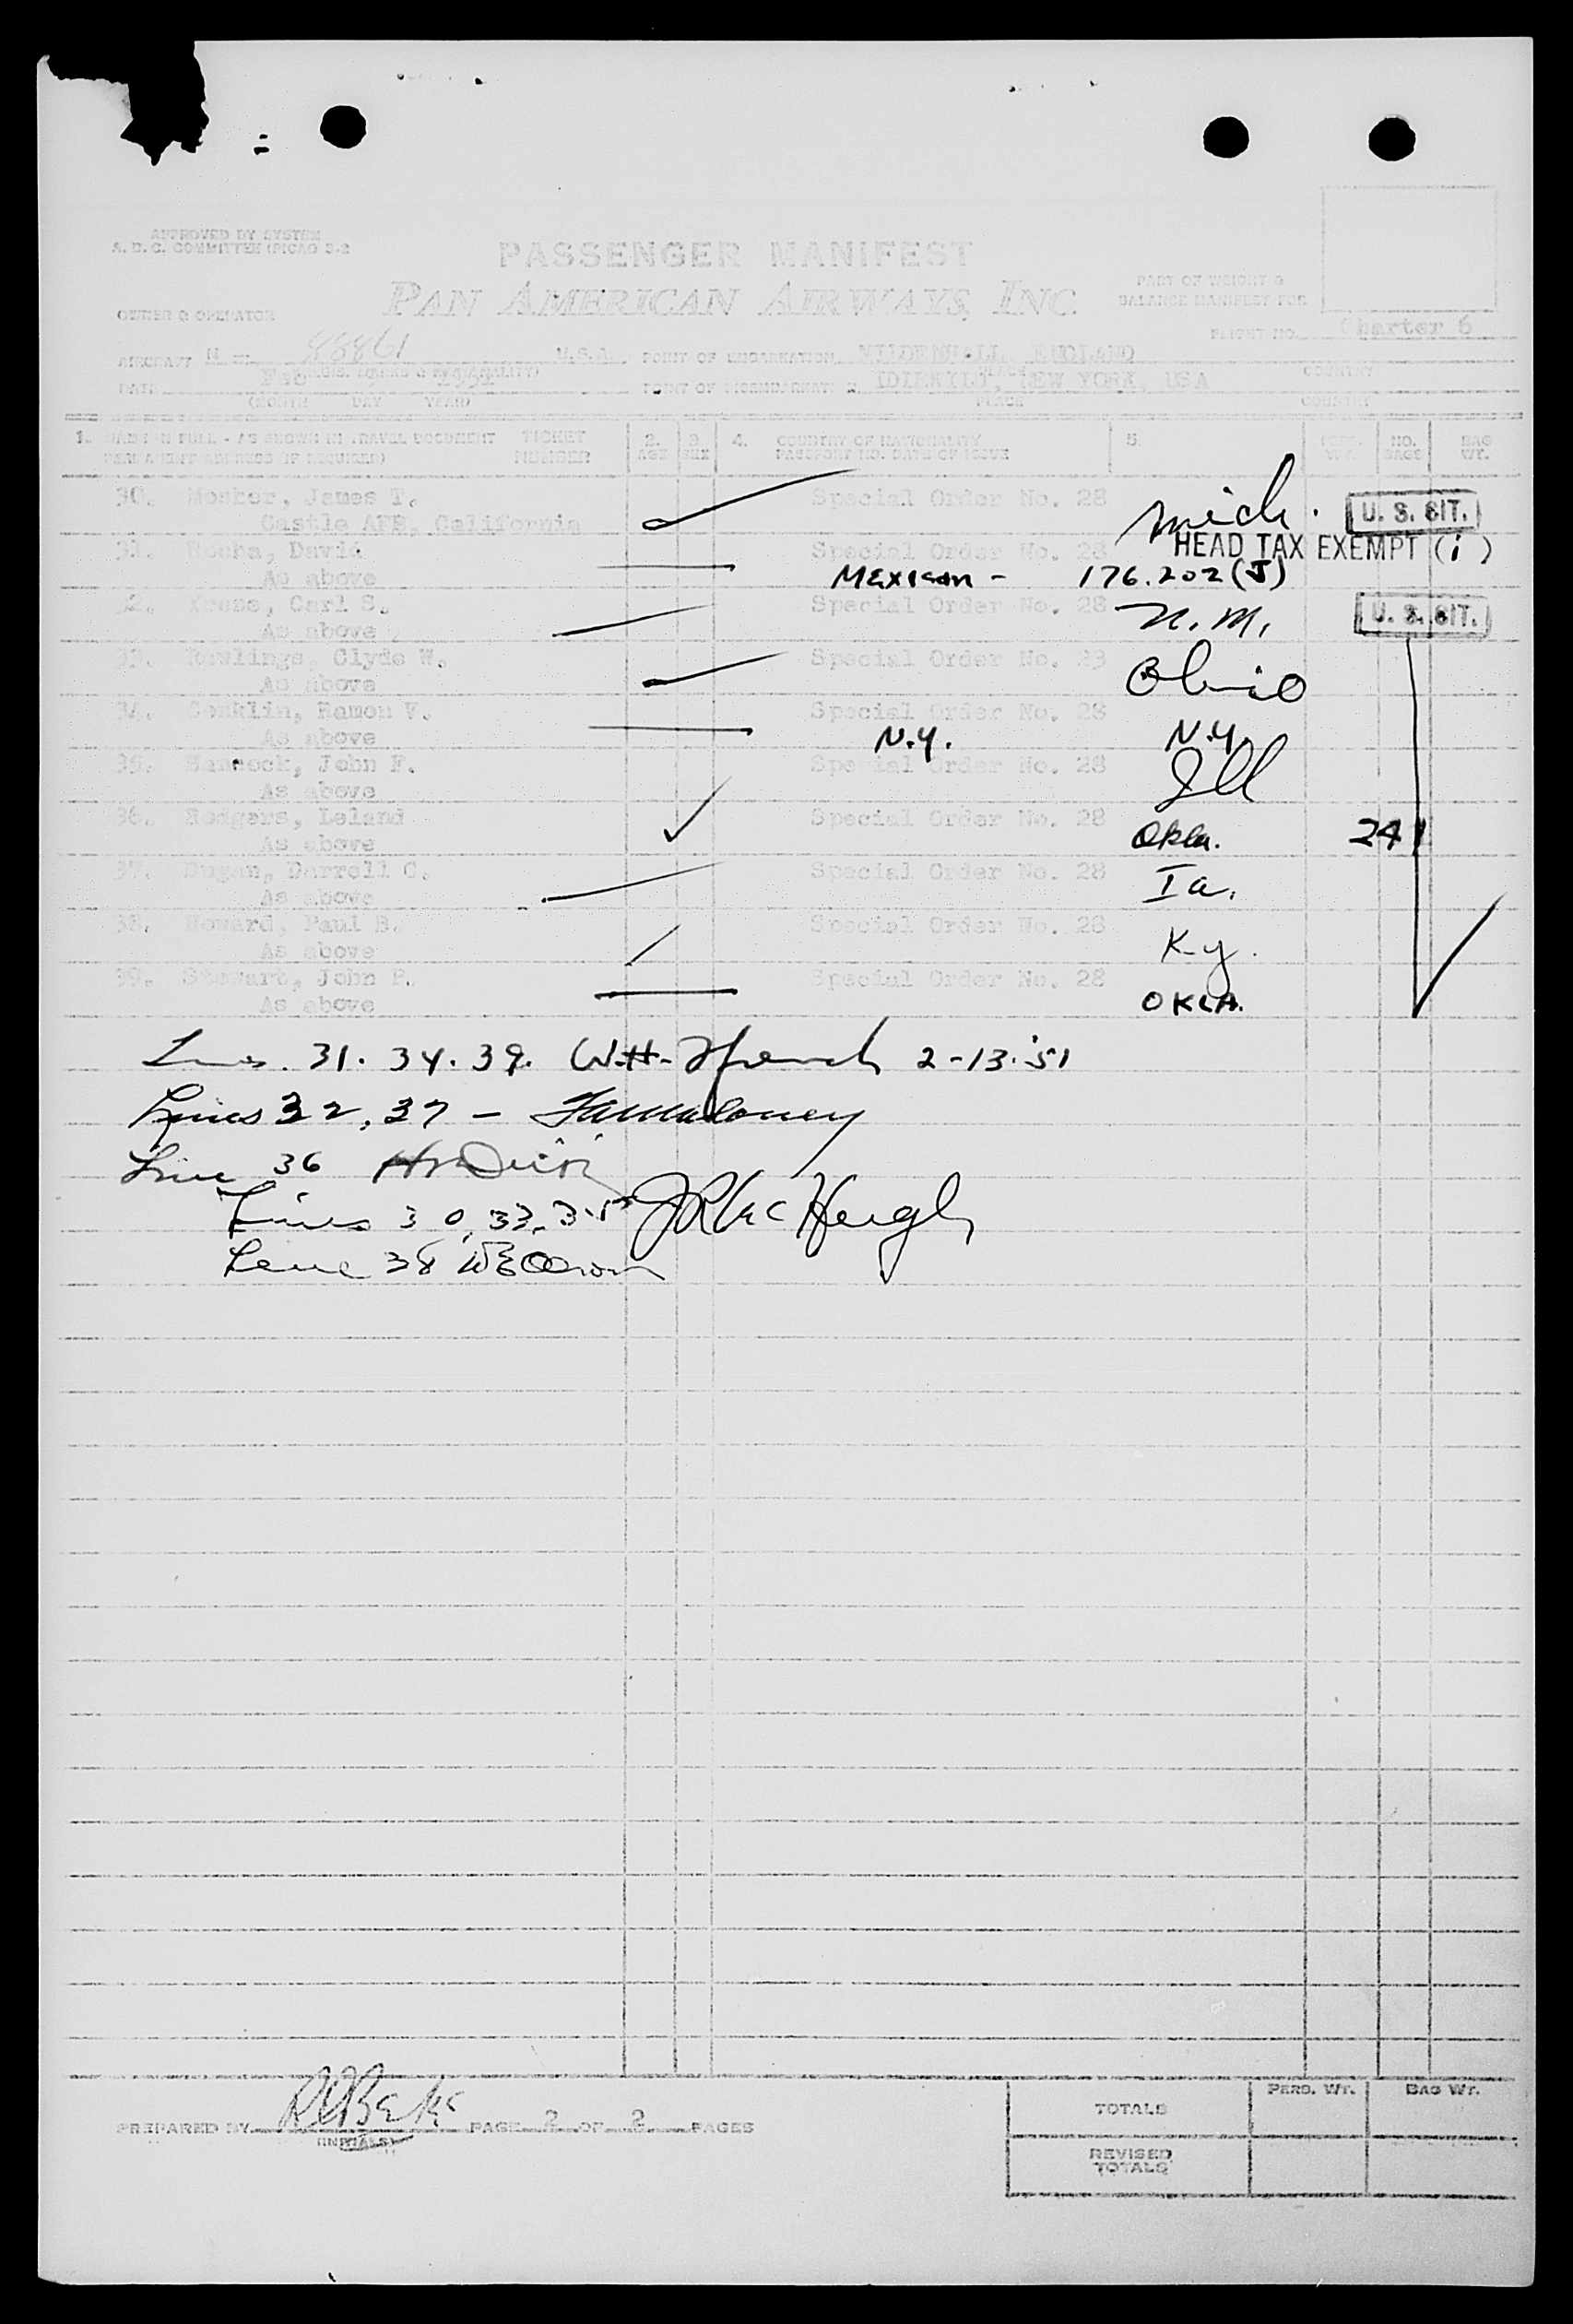 APPROVED BY SYSTEM
A. D. C. COMMITTEE (PICAO 3-2
PASSENGER MANIFEST
PAN AMERICAN AIRWAYS, INC.
PART OF WEIGHT &
BALANCE MANIFEST FOR
OWNER & OPERATOR
FLIGHT NO. Charter 6
AIRCRAFT N - 88861 U.S.A. POINT OF EMBARKATION MILDENHALL, ENGLAND
DATE Feb 1951 POINT OF DISEMBARKATION IDLEWILD, NEW YORK, USA
(MONTH DAY YEAR) PLACE COUNTRY
1. NAME IN FULL - AS SHOWN IN TRAVEL DOCUMENT TICKET 2. 3. 4. COUNTRY OF NATIONALITY 5. PERS. NO. BAG
PERMANENT ADDRESS (IF REQUIRED) NUMBER AGE SEX PASSPORT NO. DATE OF ISSUE WT. BAGS WT.
30. James T. Special Order No. 28 Mich. U. S. CIT.
Castle AFB, California
31. Rocha, David Special Order No. 28 HEAD TAX EXEMPT (i)
As above Mexican - 176.202(J)
32. Carl S. Special Order No. 28 N.M. U. S. CIT.
As above
33. Rawlings, Clyde W. Special Order No. 28 Ohio
As above
34. Conklin, Ramon V. Special Order No. 28
As above N.Y. N.Y.
35. Hancock, John F. Special Order No. 28 Ill
As above
36. Rodgers, Leland Special Order No. 28 Okla. 241
As above
37. Dugan, Darrell C. Special Order No. 28 Ia.
As above
38. Howard, Paul B. Special Order No. 28 Ky.
As above
39. Stewart, John P. Special Order No. 28
As above OKLA.
31. 34. 39. W.H. French 2-13-'51
Lines 32, 37 -
Line 36
Lines 30, 33, 35
Line 38
PREPARED BY PAGE 2 OF 2 PAGES
(INITIALS)
PERS. WT. BAG WT.
TOTALS
REVISED
TOTALS